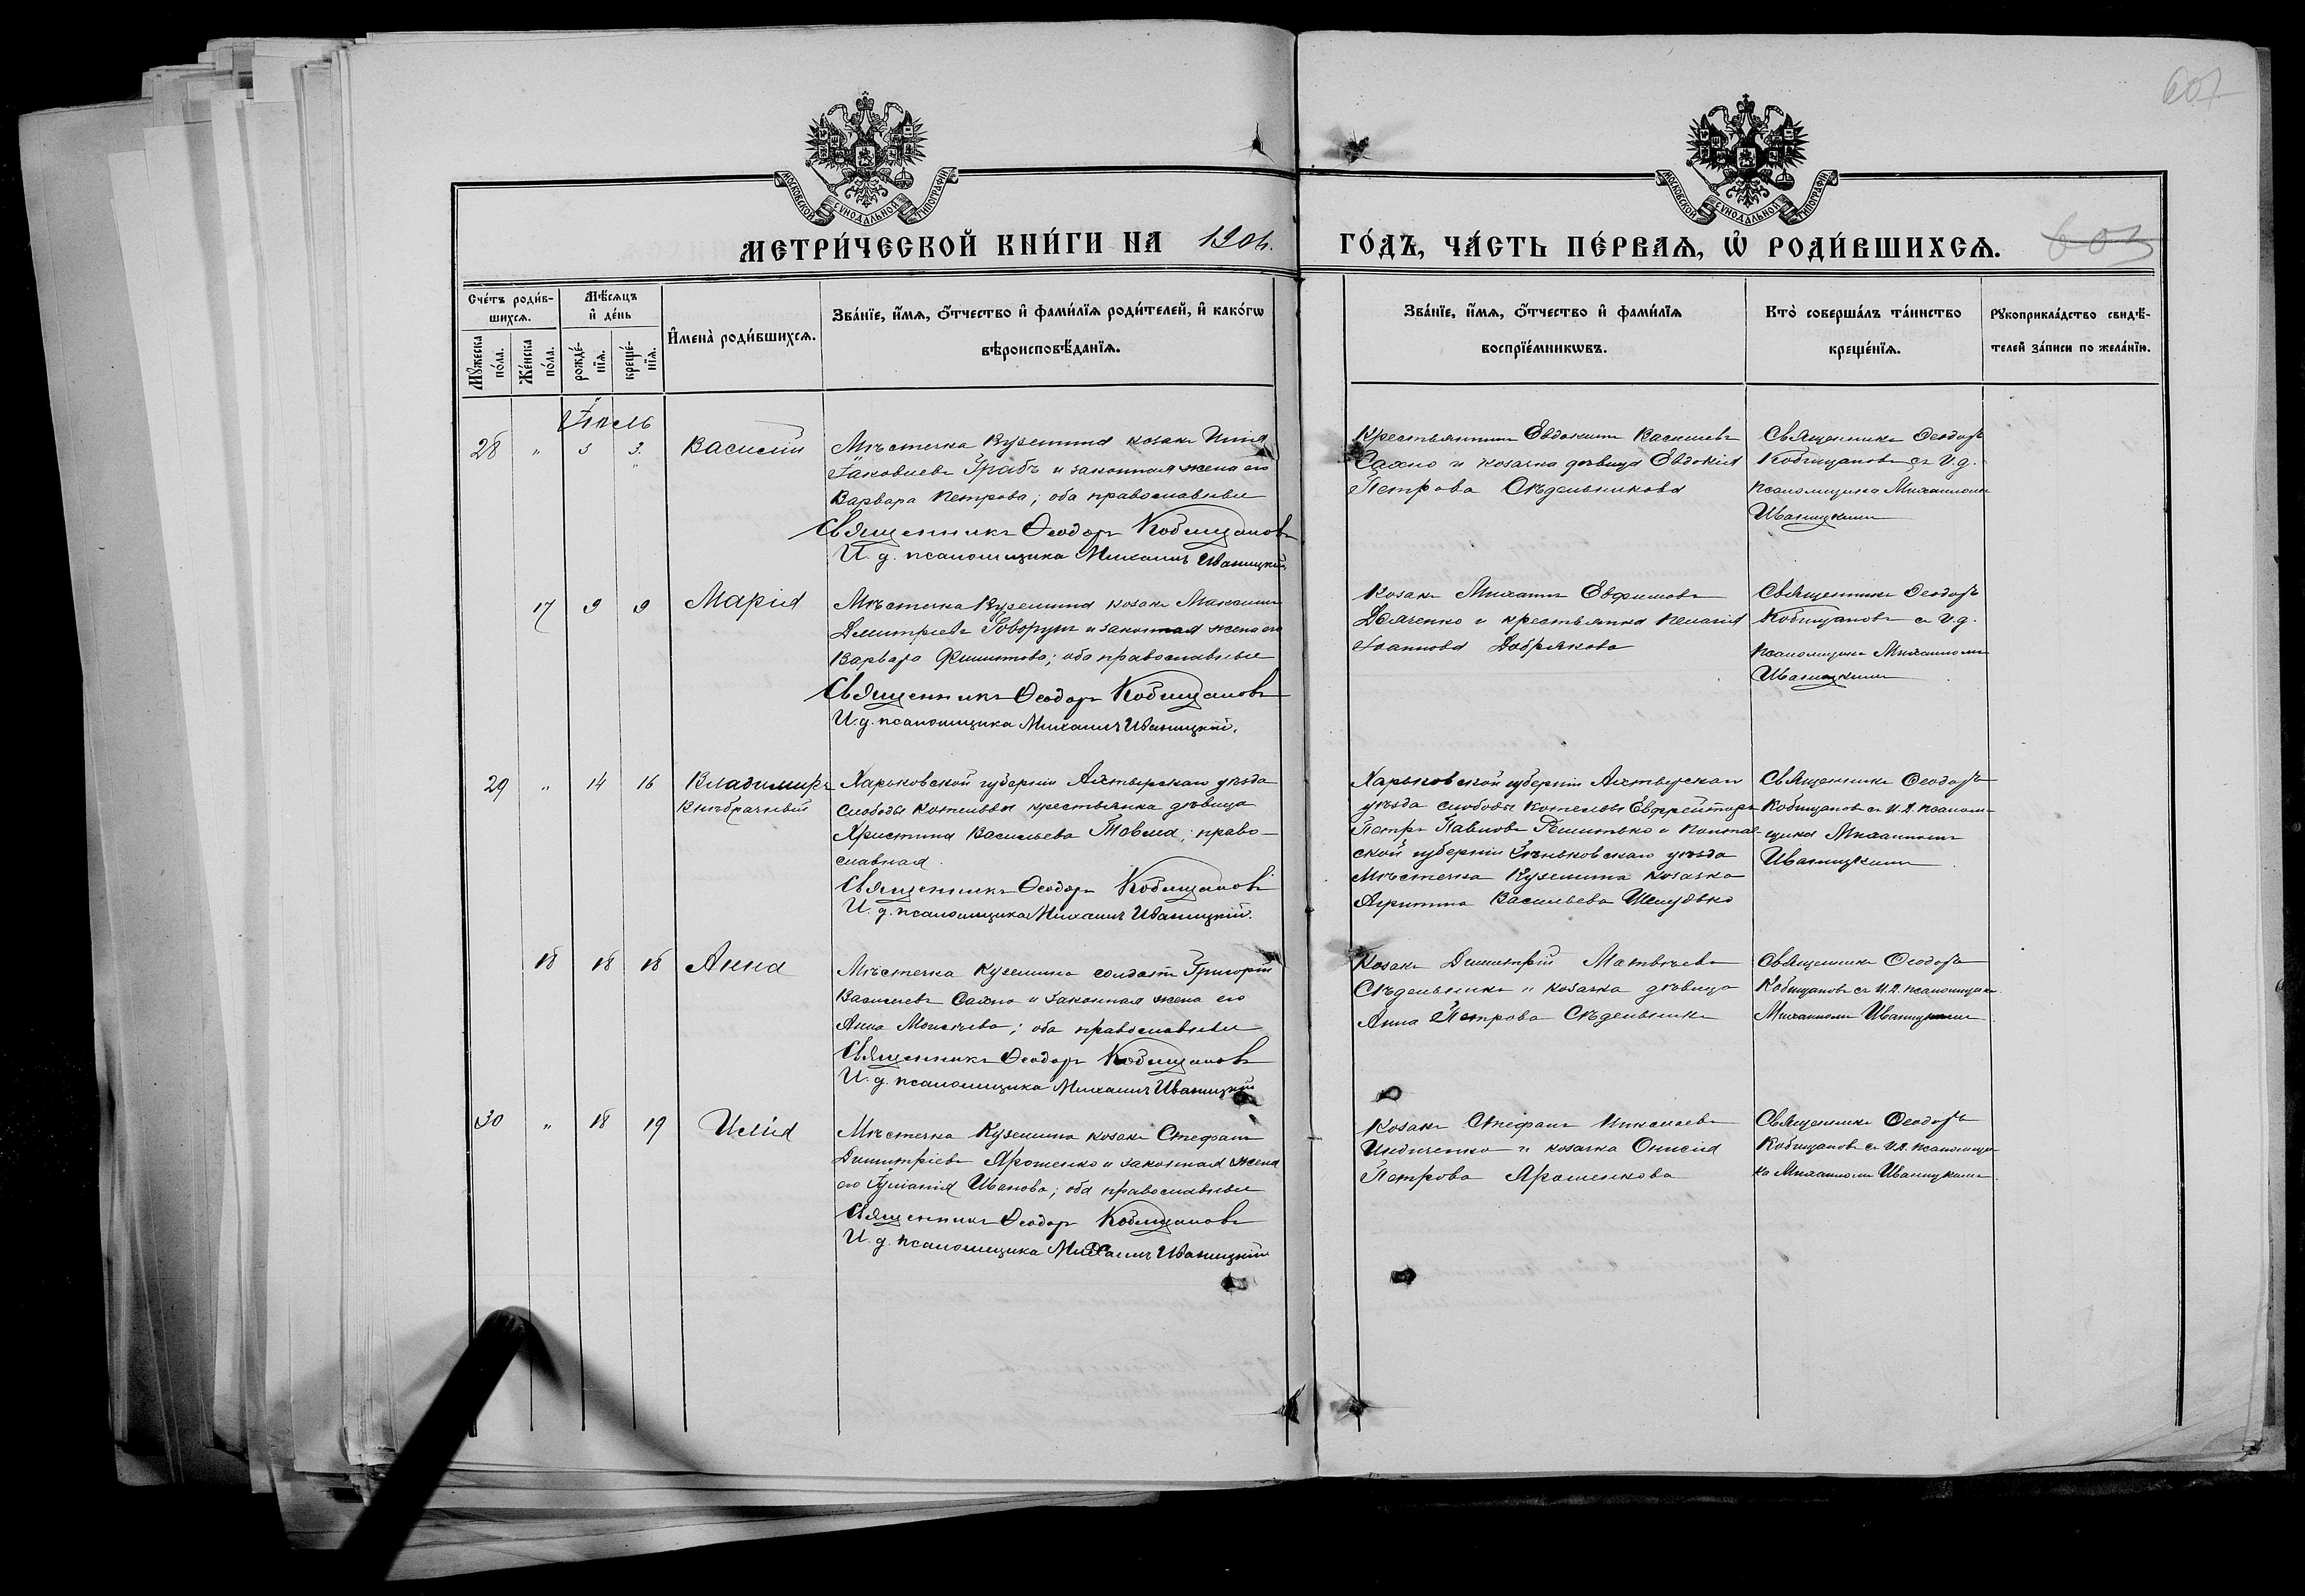 601
МОСКОВСКОЙ СѴНОДАЛЬНОЙ ТИПОГРАФІИ
МОСКОВСКОЙ СѴНОДАЛЬНОЙ ТИПОГРАФІИ
МЕТРИ́ЧЕСКОЙ КНИ́ГИ НА 1904.
ГО́ДЪ, ЧА́СТЬ ПЕ́РВАѦ, Ѿ РОДИ́ВШИХСѦ.
Сче́тъ роди́в-
шихсѧ.
Мꙋжеска по́ла.
Же́нска по́ла.
Мѣ́сѧцъ
и҆ де́нь
рожде́-
нїѧ.
креще́-
нїѧ.
И҆мена̀ роди́вшихсѧ.
Зва́нїе, и҆́мѧ, ѻ҆́тчество и҆ фами́лїѧ роди́телей, и҆ како́гѡ
вѣроисповѣ́данїѧ.
Зва́нїе, и҆́мѧ, ѻ҆́тчество и҆ фами́лїѧ
воспрїе́мникѡвъ.
Кто̀ соверша́лъ та́инство
креще́нїѧ.
Рꙋкоприкла́дство свидѣ́-
телей за́писи по жела́нїю.
Іюль
28 " 3 3. Василій
Мѣстечка Куземина козакъ Илія
Іаковлевъ Грабъ и законная жена его
Варвара Петрова; оба православные
Священникъ Ѳеодоръ Кобищановъ
И. д. псаломщика Михаилъ Иваницкій
Крестьянинъ Евдокимъ Васильевъ
Сахно и козачка дѣвица Евдокія
Петрова Сѣдельникова
Священникъ Ѳеодоръ
Кобищановъ съ И.д.
псаломщика Михаиломъ
Иваницкимъ
17 9 9 Марія
Мѣстечка Куземина козакъ Максимъ
Димитріевъ Говорунъ и законная жена его
Варвара Филиппова; оба православные
Священникъ Ѳеодоръ Кобищановъ
И. д. псаломщика Михаилъ Иваницкій.
Козакъ Михаилъ Евфимовъ
и крестьянка Пелагія
Іоаннова Добрякова
Священникъ Ѳеодоръ
Кобищановъ съ И.д.
псаломщика Михаиломъ
Иваницкимъ
29 " 14 16 Владимиръ
Внѣбрачный
Харьковской губерніи Ахтырскаго уѣзда
слободы Котельвы крестьянка дѣвица
Христина Васильева Товма; право-
славная.
Священникъ Ѳеодоръ Кобищановъ
И. д. псаломщика Михаилъ Иваницкій.
Харьковской губерніи Ахтырскаго
уѣзда слободы Котельвы Ефрейторъ
Петръ Павловъ и Полтав-
ской губерніи Зѣньковскаго уѣзда
Мѣстечка Куземина козачка
Агриппина Васильева Шелудько
Священникъ Ѳеодоръ
Кобищановъ съ И.д. псалом-
щика Михаиломъ
Иваницкимъ
18 18 18 Анна
Мѣстечка Куземина солдатъ Григорій
Васильевъ Сахно и законная жена его
Анна Моисеева; оба православные
Священникъ Ѳеодоръ Кобищановъ
И. д. псаломщика Михаилъ Иваницкій
Козакъ Димитрій Матвѣевъ
Сѣдельникъ и козачка дѣвица
Анна Петрова Сѣдельникъ
Священникъ Ѳеодоръ
Кобищановъ съ И.д. псаломщика
Михаиломъ Иваницкимъ
30 " 18 19 Илія
Мѣстечка Куземина козакъ Стефанъ
Димитріевъ Ярошенко и законная жена
его Іуліанія Иванова; оба православные
Священникъ Ѳеодоръ Кобищановъ
И. д. псаломщика Михаилъ Иваницкій
Козакъ Стефанъ Николаевъ
Индиченко и козачка Онисія
Петрова Ярошенкова
Священникъ Ѳеодоръ
Кобищановъ съ И.д. псаломщи-
ка Михаиломъ Иваницкимъ